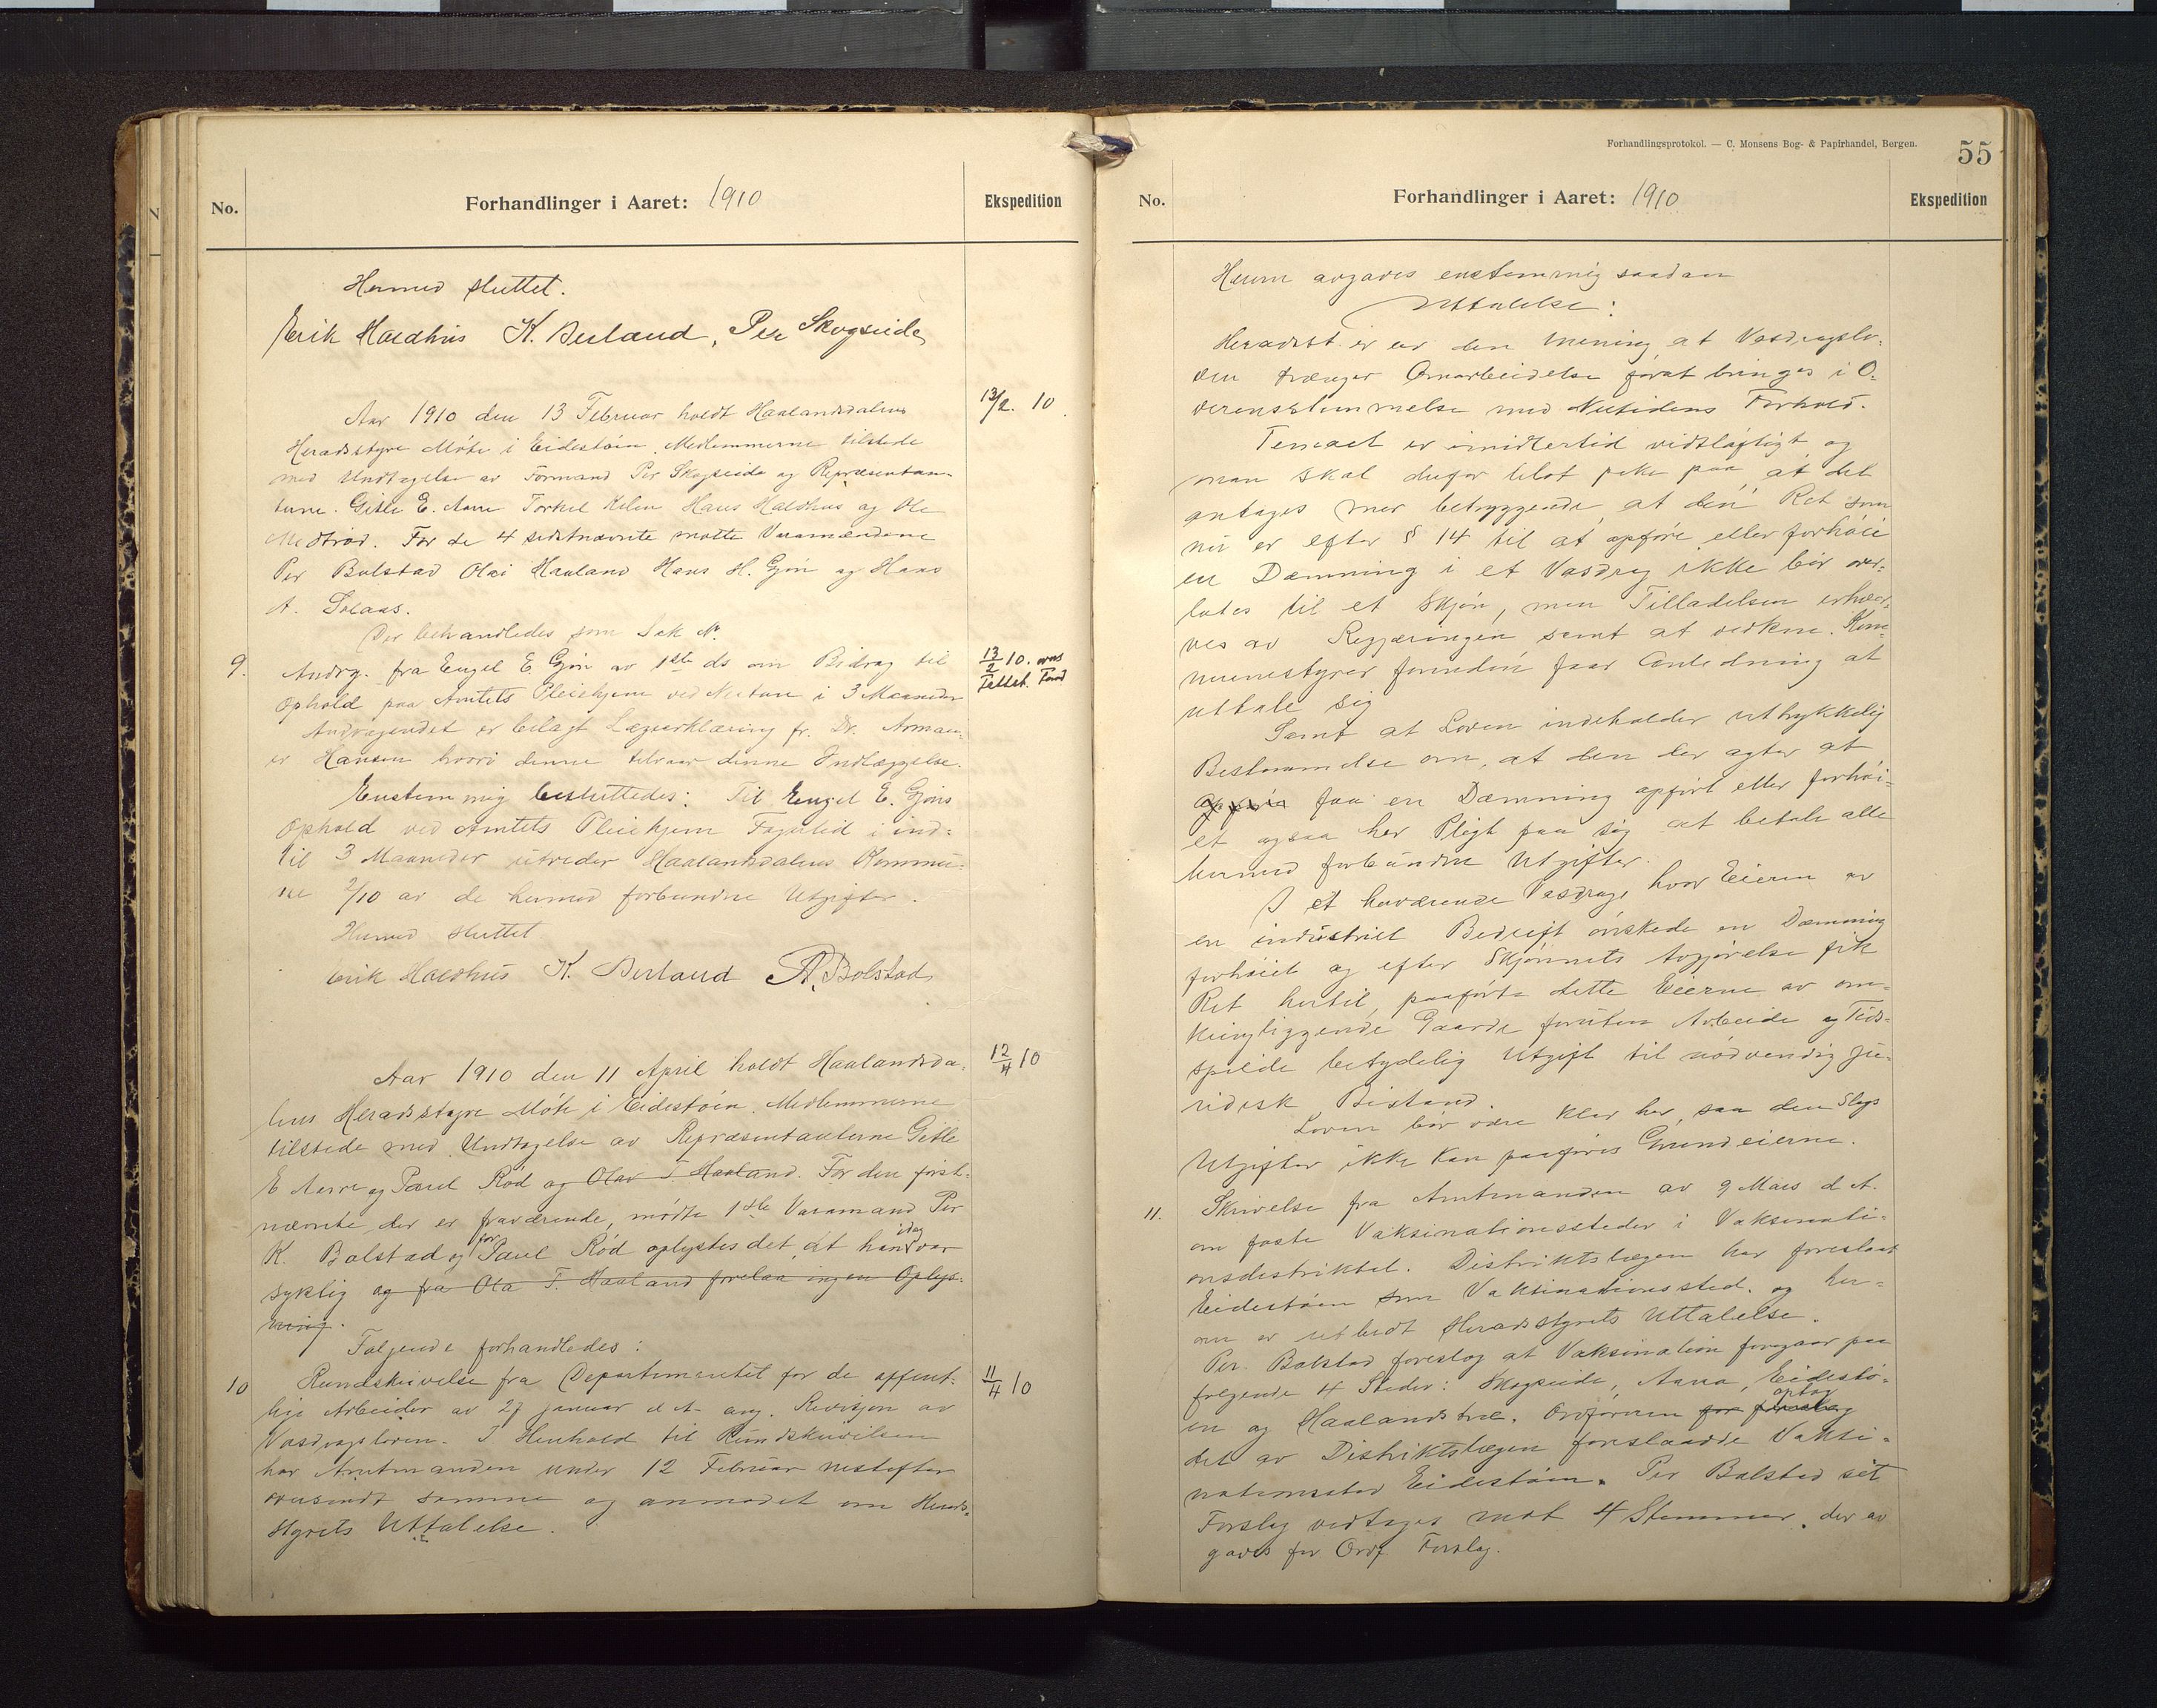 No.
Forhandlinger i Aaret: 1910
Ekspedition
Hermed sluttet.
Erik Haldhus K. Berland, Per Skogseide
Aar 1910 den 13 Februar holdt Haalandsdalens
13/2. 10
Heradsstyre Møte i Eidestøen. Medlemmerne tilstede
med Undtagelse av Formand Per Skogseide og Repræsentan-
terne. Gitle E. Aarre Torkel Kilen Hans Haldhus og Ole
Medtrød. For de 4 sidstnævnte møtte Varamændene
Per Bolstad Olai Haaland Hans H. Gjøn og Hans
A. Solaas.
Der behandledes som Sak No.
9. Andrg. fra Engel E. Gjøn av 1ste ds om Bidrag til
13/2 10.
Ophold paa Amtets Pleiehjem ved Nestun i 3 Maaneder
Andragendet er bilagt Lægeerklæring fr. Dr. Armau-
er Hansen hvori denne tilraar denne Indlæggelse.
Enstemmig besluttedes: Til Engel E. Gjøns
Ophold ved Amtets Pleiehjem Fagerlid i ind-
til 3 Maaneder utreder Haalandsdalens Kommu-
ne 2/10 av de hermed forbundne Utgifter.
Hermed sluttet
Erik Haldhus K. Berland P. Bolstad
Aar 1910 den 11 April holdt Haalandsda-
12/4 10
lens Heradsstyre Møte i Eidestøen. Medlemmerne
tilstede med Undtagelse av Repræsentanterne Gitle
E Aarre og Paul Rød og Olav T Haaland. For den først-
nævnte der er fraværende, mødte 1ste Varamand Per
K. Bolstad og for Paul Rød oplystes det at han idag var
syklig og fra Ola T. Haaland forelaa ingen Oplys-
ning.
Følgende forhandledes:
10 Rundskrivelse fra Departementet for de offent-
11/4 10
lige Arbeider av 27 januar d A. ang. Revisjon av
Vasdragsloven. I Henhold til Rundskrivelsen
har Amtmanden under 12 Februar nestefter
oversendt samme og anmodet om Herads-
styrets Uttalelse.
Forhandlingsprotokol. — C. Monsens Bog- & Papirhandel, Bergen.
55
No.
Forhandlinger i Aaret: 1910
Ekspedition
Herom avgaves enstemmig saadan
Uttalelse:
Heradsst. er av den mening, at Vasdragslo-
ven trænger Omarbeidelse forat bringes i O-
verensstemmelse med Nutidens Forhold.
Temaet er imidlertid vidtløftigt og
man skal derfor blot peke paa, at det
antages mer betryggende, at den Ret som
nu er efter § 14 til at opføre eller forhøie
en Dæmning i et Vasdrag ikke bør over-
lates til et Skjøn, men Tilladelsen erhver-
ves av Regjæringen samt at vedkom. Kom-
munestyrer forinden faar Anledning at
uttale sig
Samt at Loven indeholder uttrykkelig
Bestemmelse om, at den der agter at
faa en Dæmning opført eller forhøi-
et ogsaa har Pligt paa sig at betale alle
hermed forbundne Utgifter.
I et herværende Vasdrag, hvor Eieren av
en industriel Bedrift ønskede en Dæmning
forhøiet og efter Skjønnets Avgjørelse fik
Ret hertil, paaførte dette Eierne av om-
kringliggende Gaarde foruten Arbeide og Tids-
spilde betydelig Utgift til nødvendig Ju-
ridisk Bistand.
Loven bør være klar her, saa den Slags
Utgifter ikke kan paaføres Grundeierne.
11. Skrivelse fra Amtmanden av 9 Mars d A.
om faste Vaksinationssteder i Vaksinati-
onsdistriktet. Distriktslægen har foreslaat
Eidestøen som Vaksinationssted, og her-
om er utbedt Heradsstyrets Uttalelse.
Per Bolstad foreslog at Vaksination foregaar paa
følgende 4 Steder: Skogseide, Aarra, Eidestø-
en og Haalandstræ. Ordføreren for foreslog optog
det av Distriktslægen foreslaadde Vaksi-
nationssted Eidestøen. Per Bolstad sit
Forslag vedtages mot 4 Stemmer, der av
gaves for Ordf Forslag.